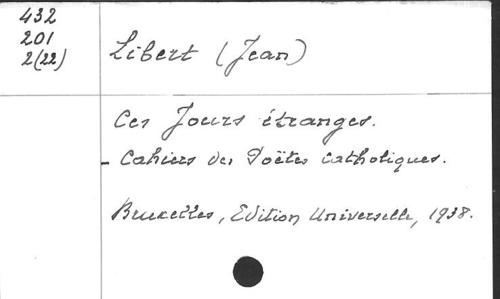 432
201
2(22)
Libert (Jean)
Ces Jours étranges.
- Cahiers des Poètes catholiques.
Bruxelles, Edition Universelle, 1938.